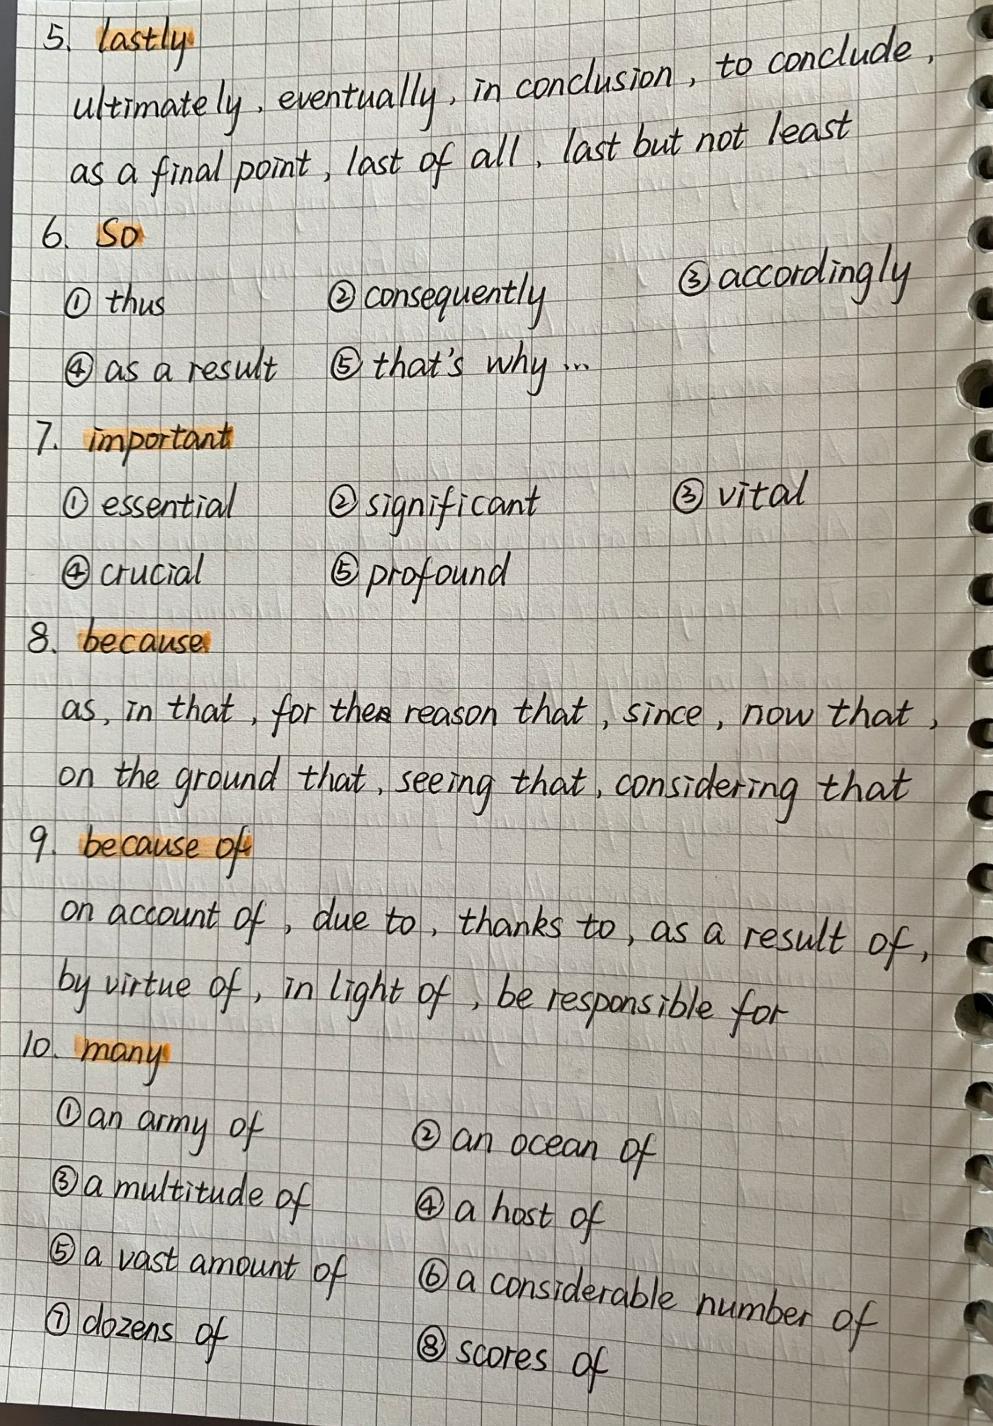 5. lastly
ultimately, eventually, in conclusion, to conclude,
as a final point, last of all, last but not least
6. so
① thus ② consequently ③ accordingly
④ as a result ⑤ that's why ...
7. important
① essential ② significant ③ vital
④ crucial ⑤ profound
8. because
as, in that, for the reason that, since, now that,
on the ground that, seeing that, considering that
9. because of
on account of, due to, thanks to, as a result of,
by virtue of, in light of, be responsible for
10. many
① an army of ② an ocean of
③ a multitude of ④ a host of
⑤ a vast amount of ⑥ a considerable number of
⑦ dozens of ⑧ scores of